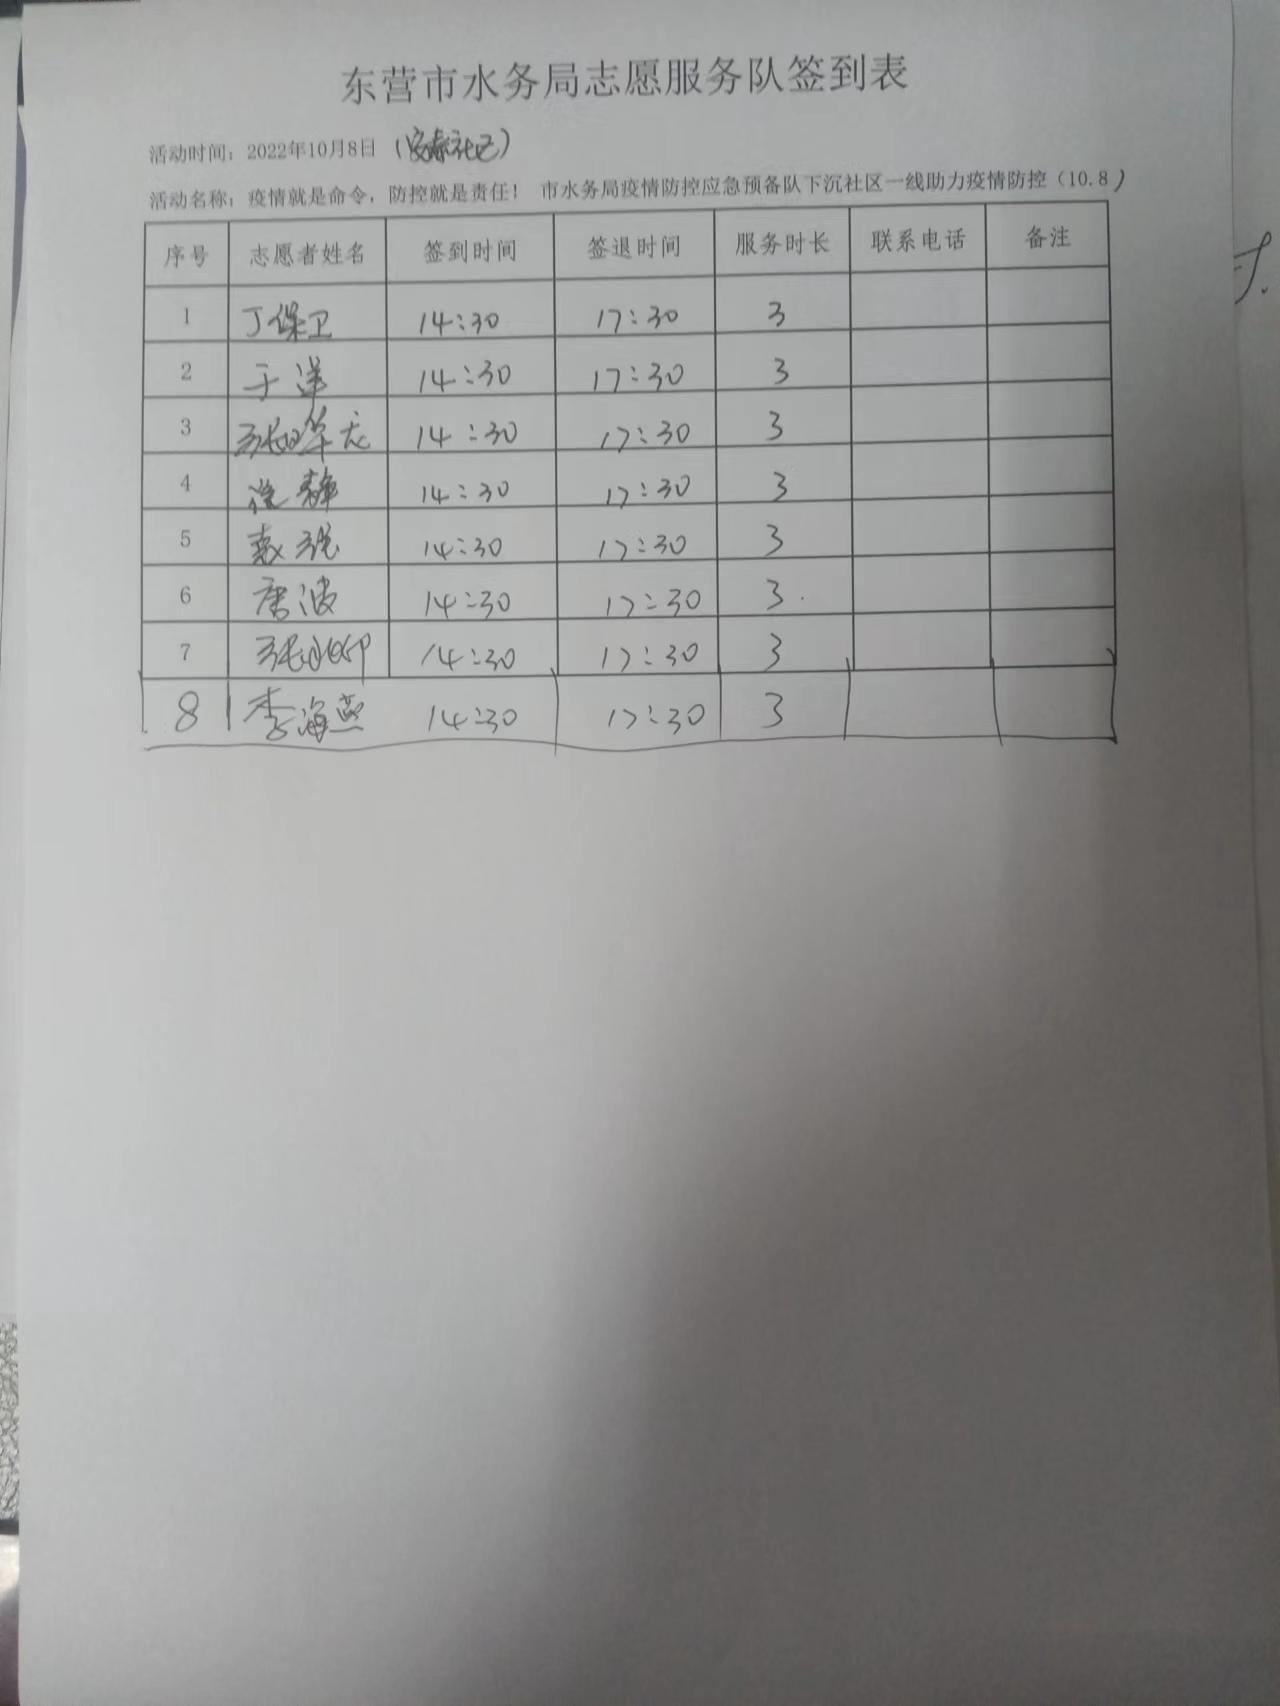 东营市水务局志愿服务队签到表
活动时间：2022年10月8日（安泰社区）
活动名称：疫情就是命令，防控就是责任！ 市水务局疫情防控应急预备队下沉社区一线助力疫情防控（10.8）
序号 志愿者姓名 签到时间 签退时间 服务时长 联系电话 备注
1 丁保卫 14:30 17:30 3
2 于洋 14:30 17:30 3
3 14:30 17:30 3
4 徐静 14:30 17:30 3
5 14:30 17:30 3
6 唐波 14:30 17:30 3
7 14:30 17:30 3
8 李海燕 14:30 17:30 3